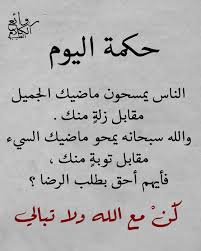 روائع
الكلام
حكمة اليوم
الناس يمسحون ماضيك الجميل
مقابل زلةٍ منك .
والله سبحانه يمحو ماضيك السيء
مقابل توبةٍ منك ،
فأيهم أحق بطلب الرضا ؟
كُنْ مع الله ولا تبالي